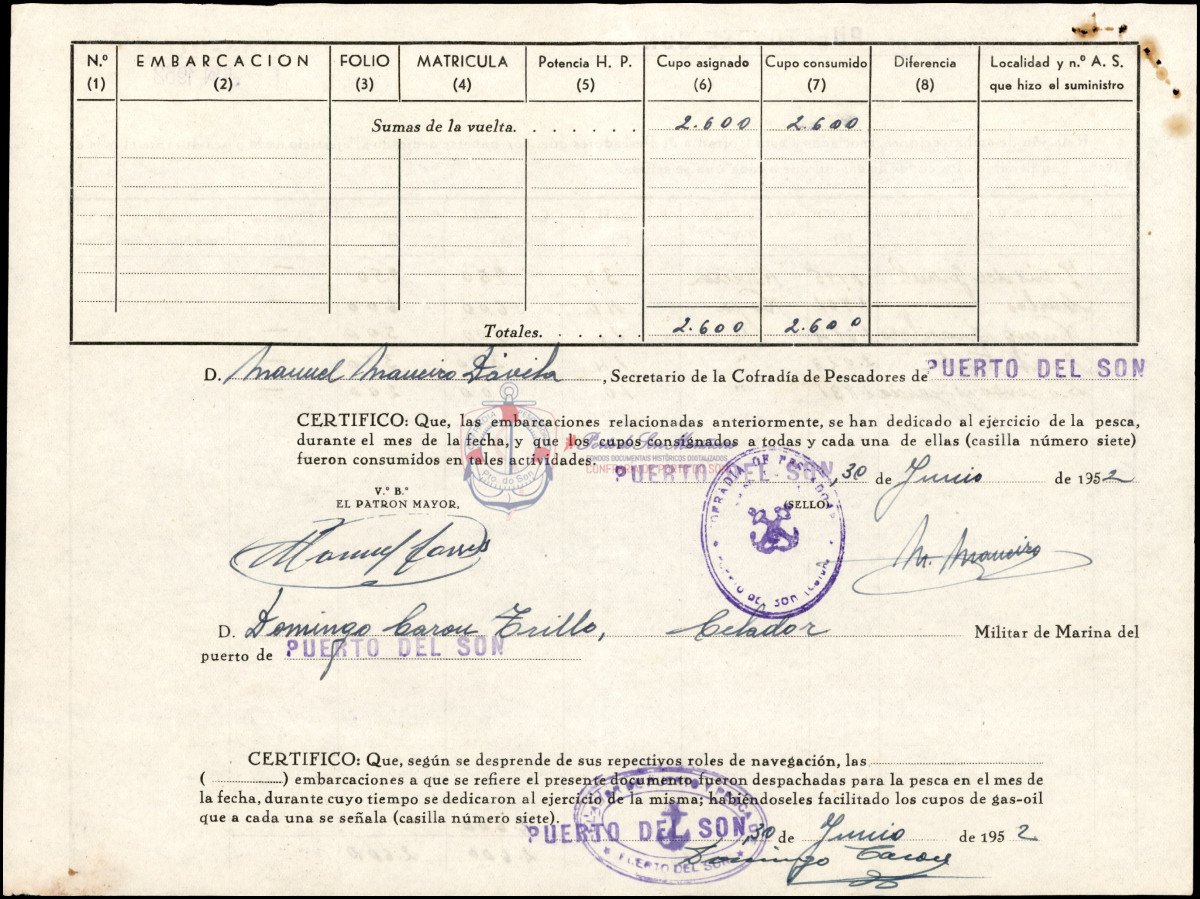 N.º EMBARCACION FOLIO MATRICULA Potencia H. P. Cupo asignado Cupo consumido Diferencia Localidad y n.º A. S.
(1) (2) (3) (4) (5) (6) (7) (8) que hizo el suministro
Sumas de la vuelta. . . . . . . 2.600 2.600
Totales. . . . . . 2.600 2.600
D. Manuel Maneiro Dávila, Secretario de la Cofradía de Pescadores de PUERTO DEL SON
CERTIFICO: Que, las embarcaciones relacionadas anteriormente, se han dedicado al ejercicio de la pesca,
durante el mes de la fecha, y que los cupos consignados a todas y cada una de ellas (casilla número siete)
fueron consumidos en tales actividades.
PUERTO DEL SON, 30 de Junio de 1952
V.º B.º
EL PATRON MAYOR,
(SELLO)
COFRADIA DE PESCADORES
PUERTO DEL SON
Pto. do Son
FONDOS DOCUMENTAIS HISTÓRICOS DIXITALIZADOS
Manuel
M. Maneiro
D. Domingo Carou Trillo, Celador Militar de Marina del
puerto de PUERTO DEL SON
CERTIFICO: Que, según se desprende de sus repectivos roles de navegación, las
( ) embarcaciones a que se refiere el presente documento fueron despachadas para la pesca en el mes de
la fecha, durante cuyo tiempo se dedicaron al ejercicio de la misma; habiéndoseles facilitado los cupos de gas-oil
que a cada una se señala (casilla número siete).
PUERTO DEL SON, 30 de Junio de 1952
PUERTO DEL SON
Domingo Carou